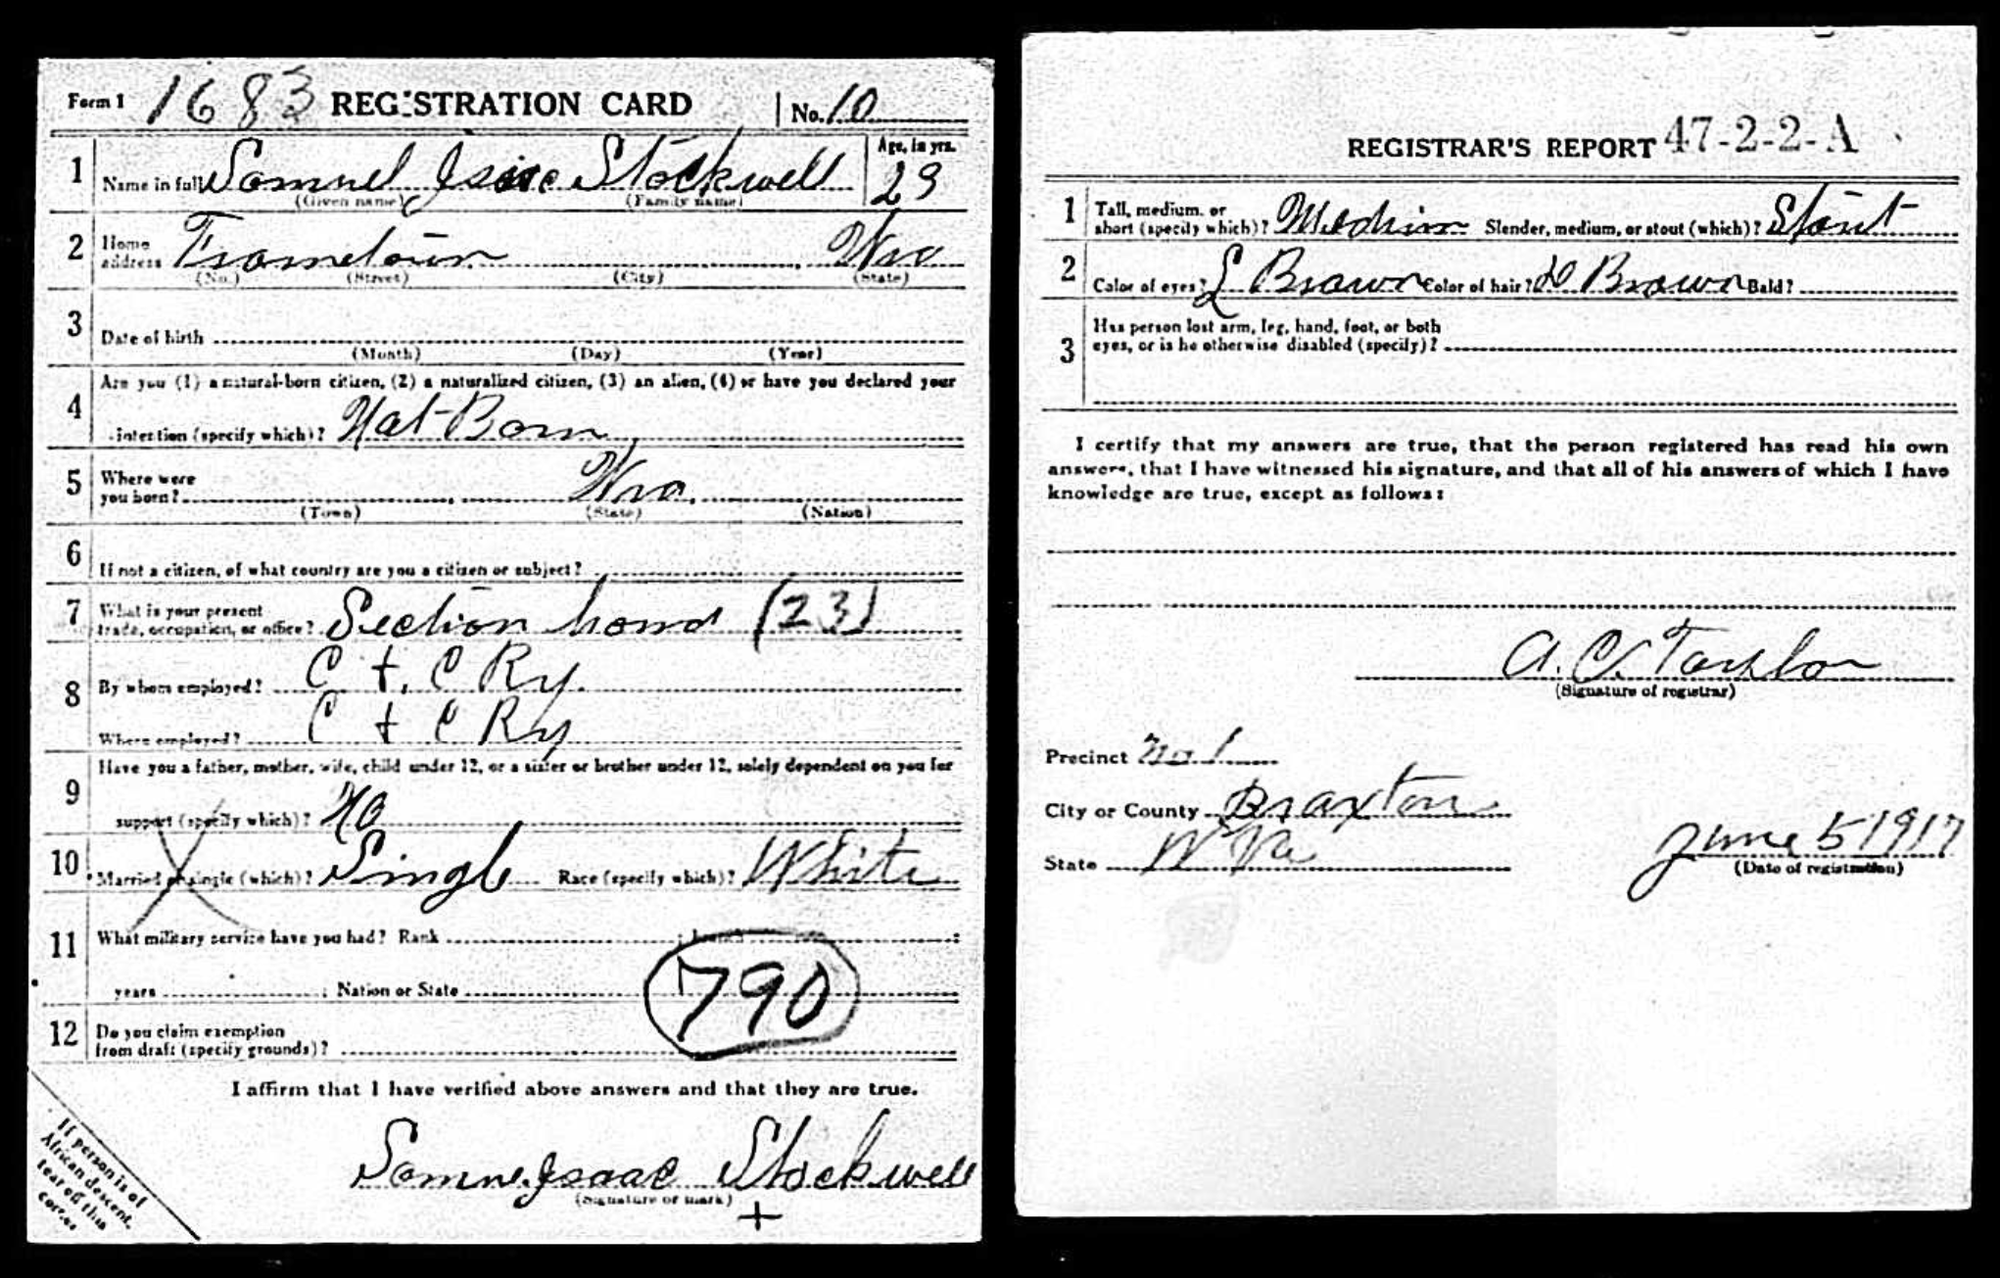 Form 1 1683 REGISTRATION CARD No. 10
1 Name in full Samuel Isaac Stockwell Age, in yrs. 23
(Given name) (Family name)
2 Home address Frametown W Va
(No.) (Street) (City) (State)
3 Date of birth
(Month) (Day) (Year)
4 Are you (1) a natural-born citizen, (2) a naturalized citizen, (3) an alien, (4) or have you declared your
intention (specify which)? Nat Born
5 Where were you born? W Va
(Town) (State) (Nation)
6 If not a citizen, of what country are you a citizen or subject?
7 What is your present trade, occupation, or office? Section hand (23)
8 By whom employed? C + C Ry.
Where employed? C + C Ry
9 Have you a father, mother, wife, child under 12, or a sister or brother under 12, solely dependent on you for
support (specify which)? No
10 Married or single (which)? Single Race (specify which)? White
11 What military service have you had? Rank ; branch ;
years ; Nation or State
790
12 Do you claim exemption
from draft (specify grounds)?
I affirm that I have verified above answers and that they are true.
Isaac Stockwell
(Signature or mark)
+
If person is of
African descent,
tear off this
corner
REGISTRAR'S REPORT 47-2-2-A
1 Tall, medium, or
short (specify which)? Medium Slender, medium, or stout (which)? Stout
2 Color of eyes? L Brown Color of hair? D Brown Bald?
3 Has person lost arm, leg, hand, foot, or both
eyes, or is he otherwise disabled (specify)?
I certify that my answers are true, that the person registered has read his own
answers, that I have witnessed his signature, and that all of his answers of which I have
knowledge are true, except as follows:
A. C.
(Signature of registrar)
Precinct No 1
City or County Braxton
State W Va
June 5 1917
(Date of registration)